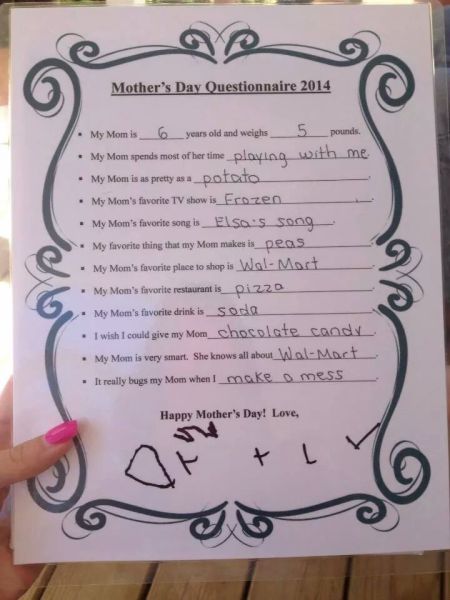 Mother's Day Questionnaire 2014
▪ My Mom is 6 years old and weighs 5 pounds.
▪ My Mom spends most of her time playing with me.
▪ My Mom is as pretty as a potato.
▪ My Mom's favorite TV show is Frozen.
▪ My Mom's favorite song is Elsa's song.
▪ My favorite thing that my Mom makes is peas.
▪ My Mom's favorite place to shop is Wal-Mart.
▪ My Mom's favorite restaurant is pizza.
▪ My Mom's favorite drink is soda.
▪ I wish I could give my Mom chocolate candy.
▪ My Mom is very smart. She knows all about Wal-Mart.
▪ It really bugs my Mom when I make a mess.
Happy Mother's Day! Love,